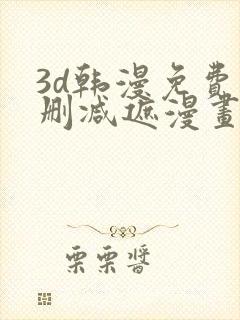 3d韩漫免费
删减遮漫畫
栗栗醬